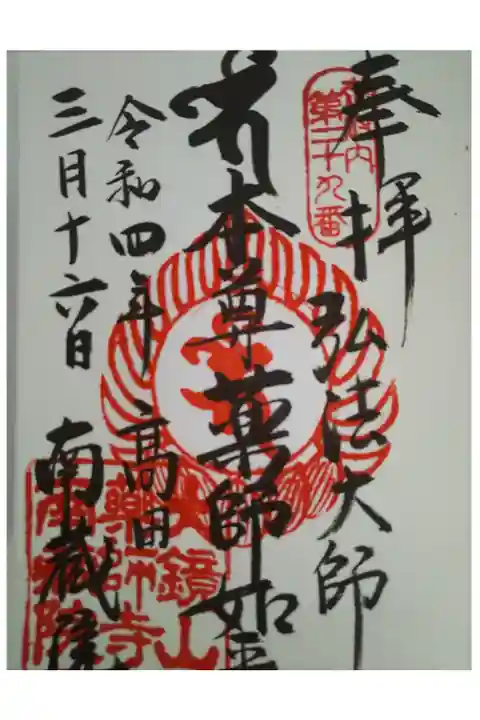 奉拝
弘法大師
第二十九番
本尊薬師如来
令和四年
三月十六日
高田
南蔵院
大鏡山
薬師寺
南蔵院